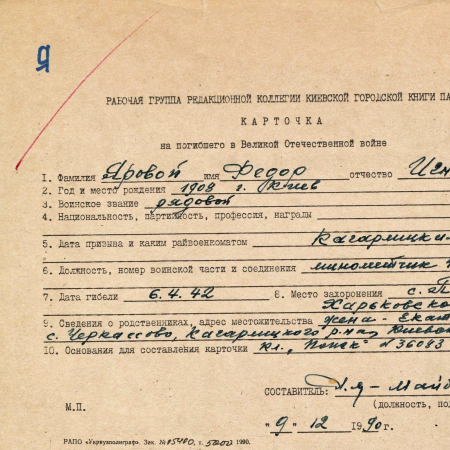 Я
РАБОЧАЯ ГРУППА РЕДАКЦИОННОЙ КОЛЛЕГИИ КИЕВСКОЙ ГОРОДСКОЙ КНИГИ ПА
КАРТОЧКА
на погибшего в Великой Отечественной войне
1. Фамилия Яровой имя Федор отчество
2. Год и место рождения 1908 г. Киев
3. Воинское звание рядовой
4. Национальность, партийность, профессия, награды
5. Дата призыва и каким райвоенкоматом Кагарлицки
6. Должность, номер воинской части и соединения минометчик
7. Дата гибели 6.4.42 8. Место захоронения с.
Харьковско
9. Сведения о родственниках, адрес местожительства жена - Екат
с. Черкассово, Кагарлицкого р-на, Киево
10. Основания для составления карточки кл. "Поиск" №36043
СОСТАВИТЕЛЬ:
М.П. (должность, по
"9" 12 1990г.
РАПО «Укрвузполиграф». Зак. № 05400, т. 5000 1990.